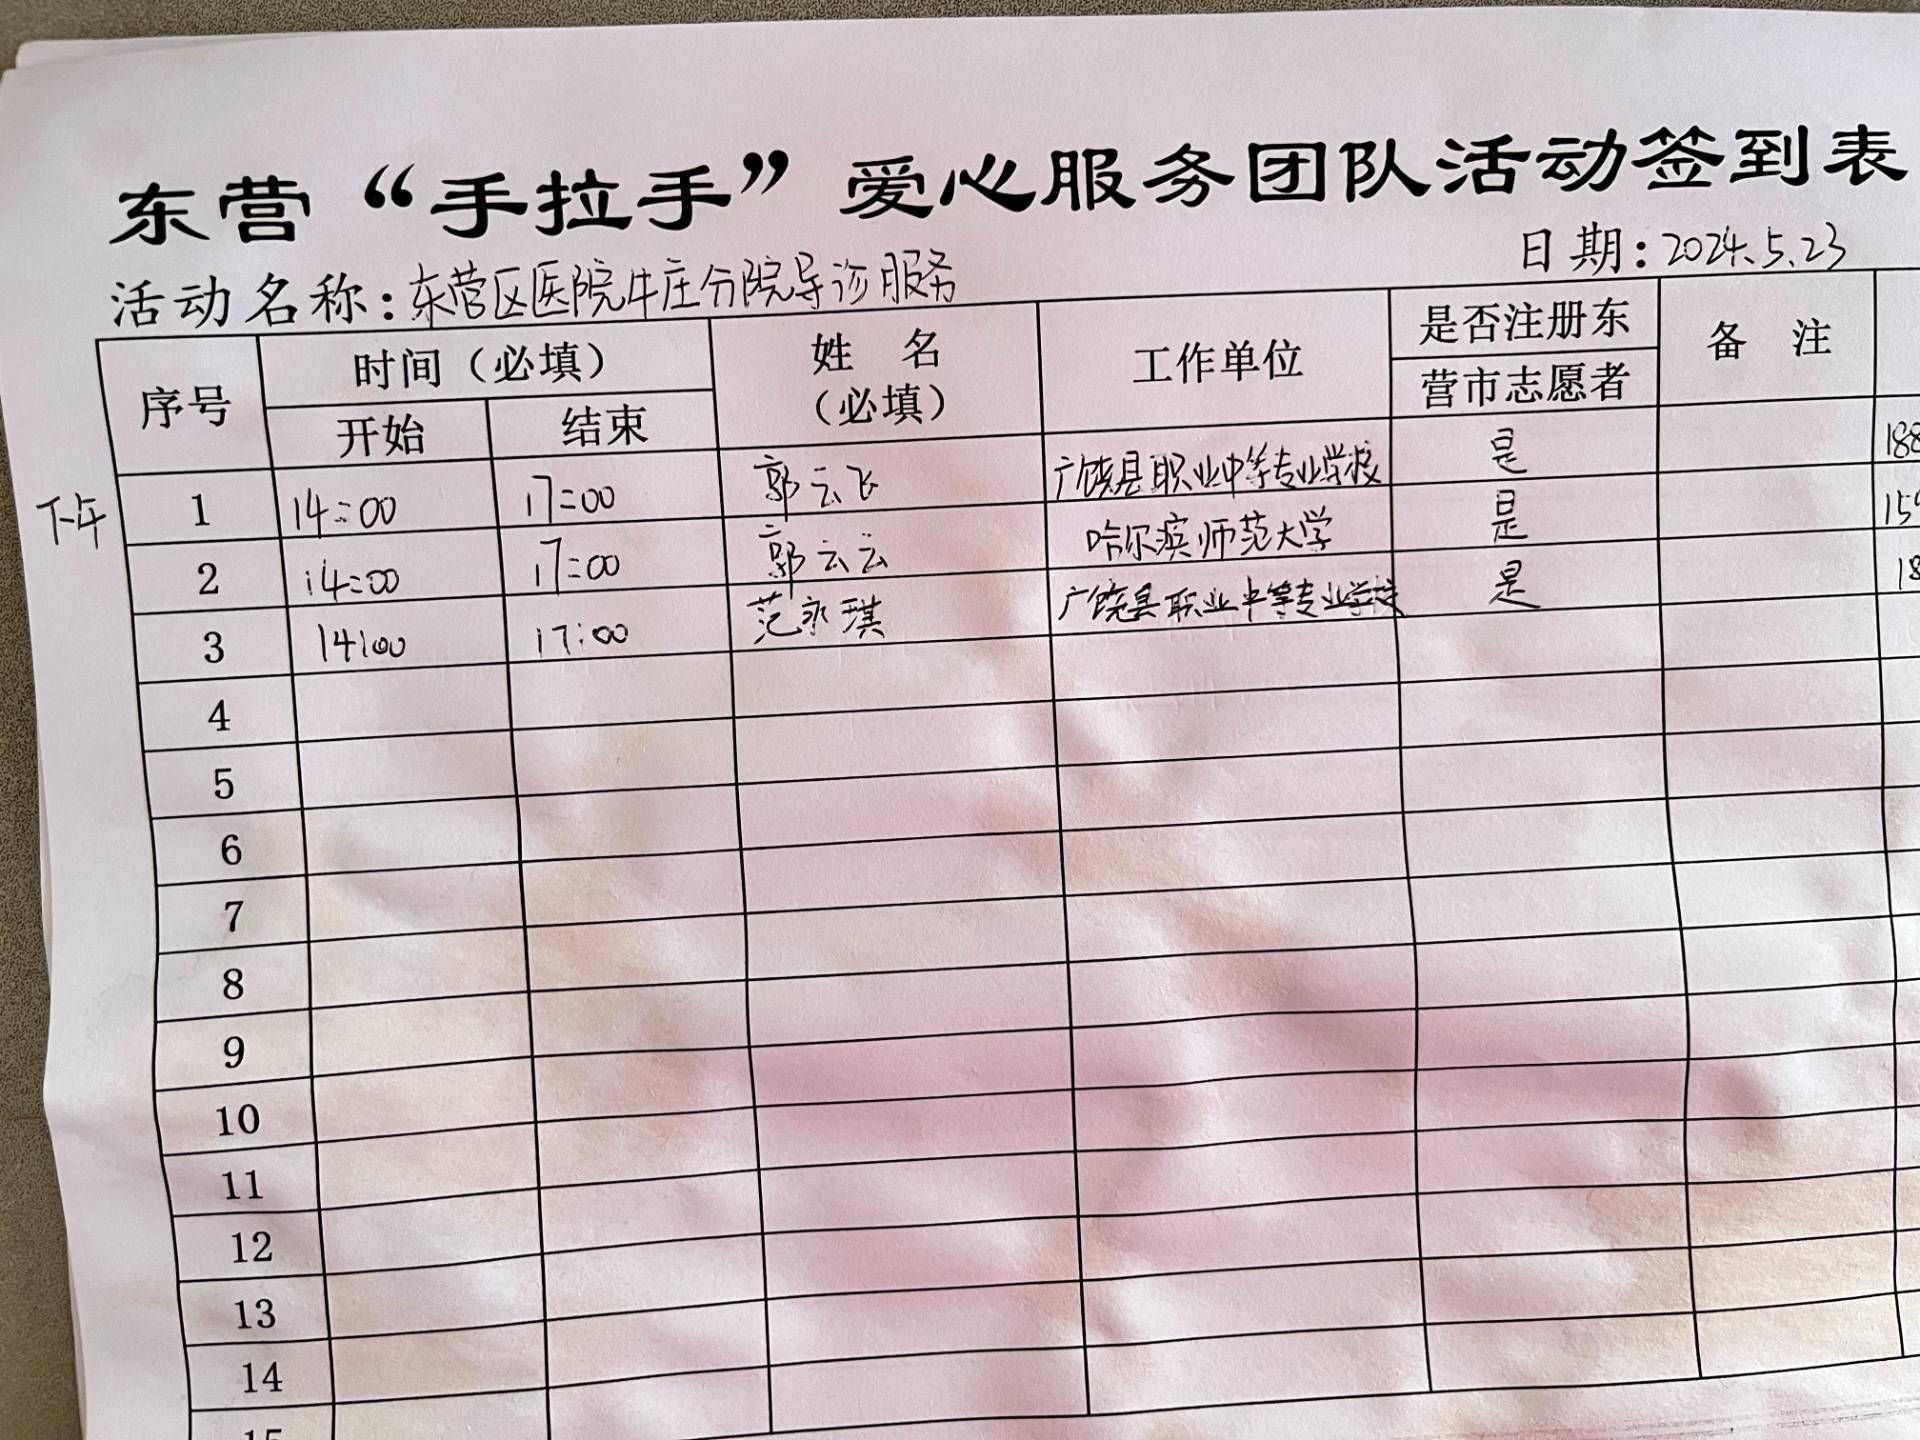 东营“手拉手”爱心服务团队活动签到表
活动名称：东营区医院牛庄分院导诊服务 日期：2024.5.23
序号 时间（必填） 姓 名（必填） 工作单位 是否注册东营市志愿者 备 注
开始 结束
下午 1 14:00 17:00 郭云飞 广饶县职业中等专业学校 是 188
2 14:00 17:00 郭云云 哈尔滨师范大学 是 159
3 14:00 17:00 范永琪 广饶县职业中等专业学校 是 18
4
5
6
7
8
9
10
11
12
13
14
15